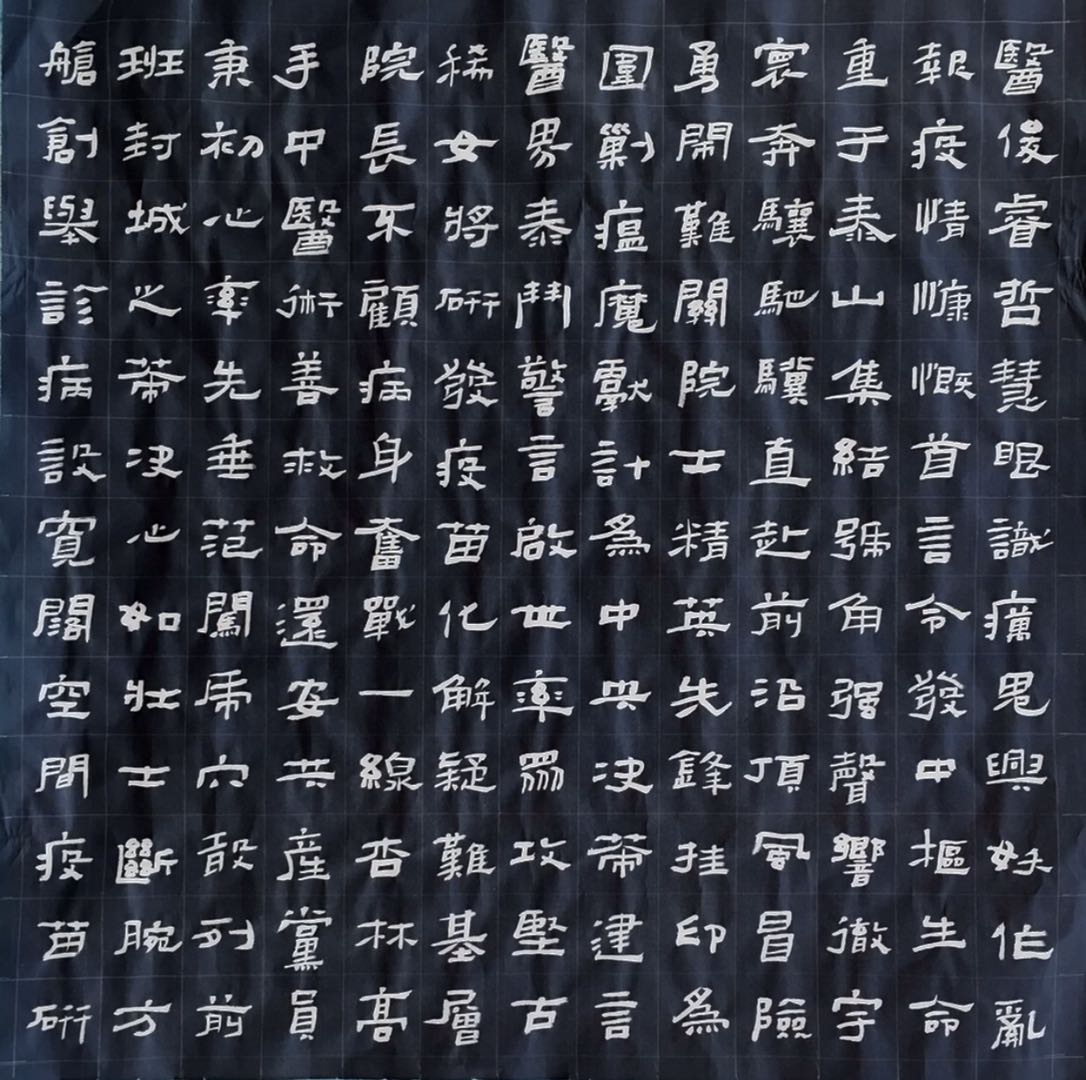 醫俊睿哲慧眼識癘鬼興妖作亂
報疫情慷慨首言令發中樞生命
重于泰山集結號角强聲響徹宇
寰奔驤馳驥直赴前沿頂風冒險
勇闖難關院士精英先鋒挂印爲
圍剿瘟魔獻計爲中央决策建言
醫界泰鬥警言啟世率衆攻堅古
稀女將研發疫苗化解疑難基層
院長不顧病身奮戰一線杏林高
手中醫術善救命還安共產黨員
秉初心率先垂范闖虎穴殺列前
班封城之策决心如壮士斷腕方
艙創舉診病設寬闊空間疫苗研